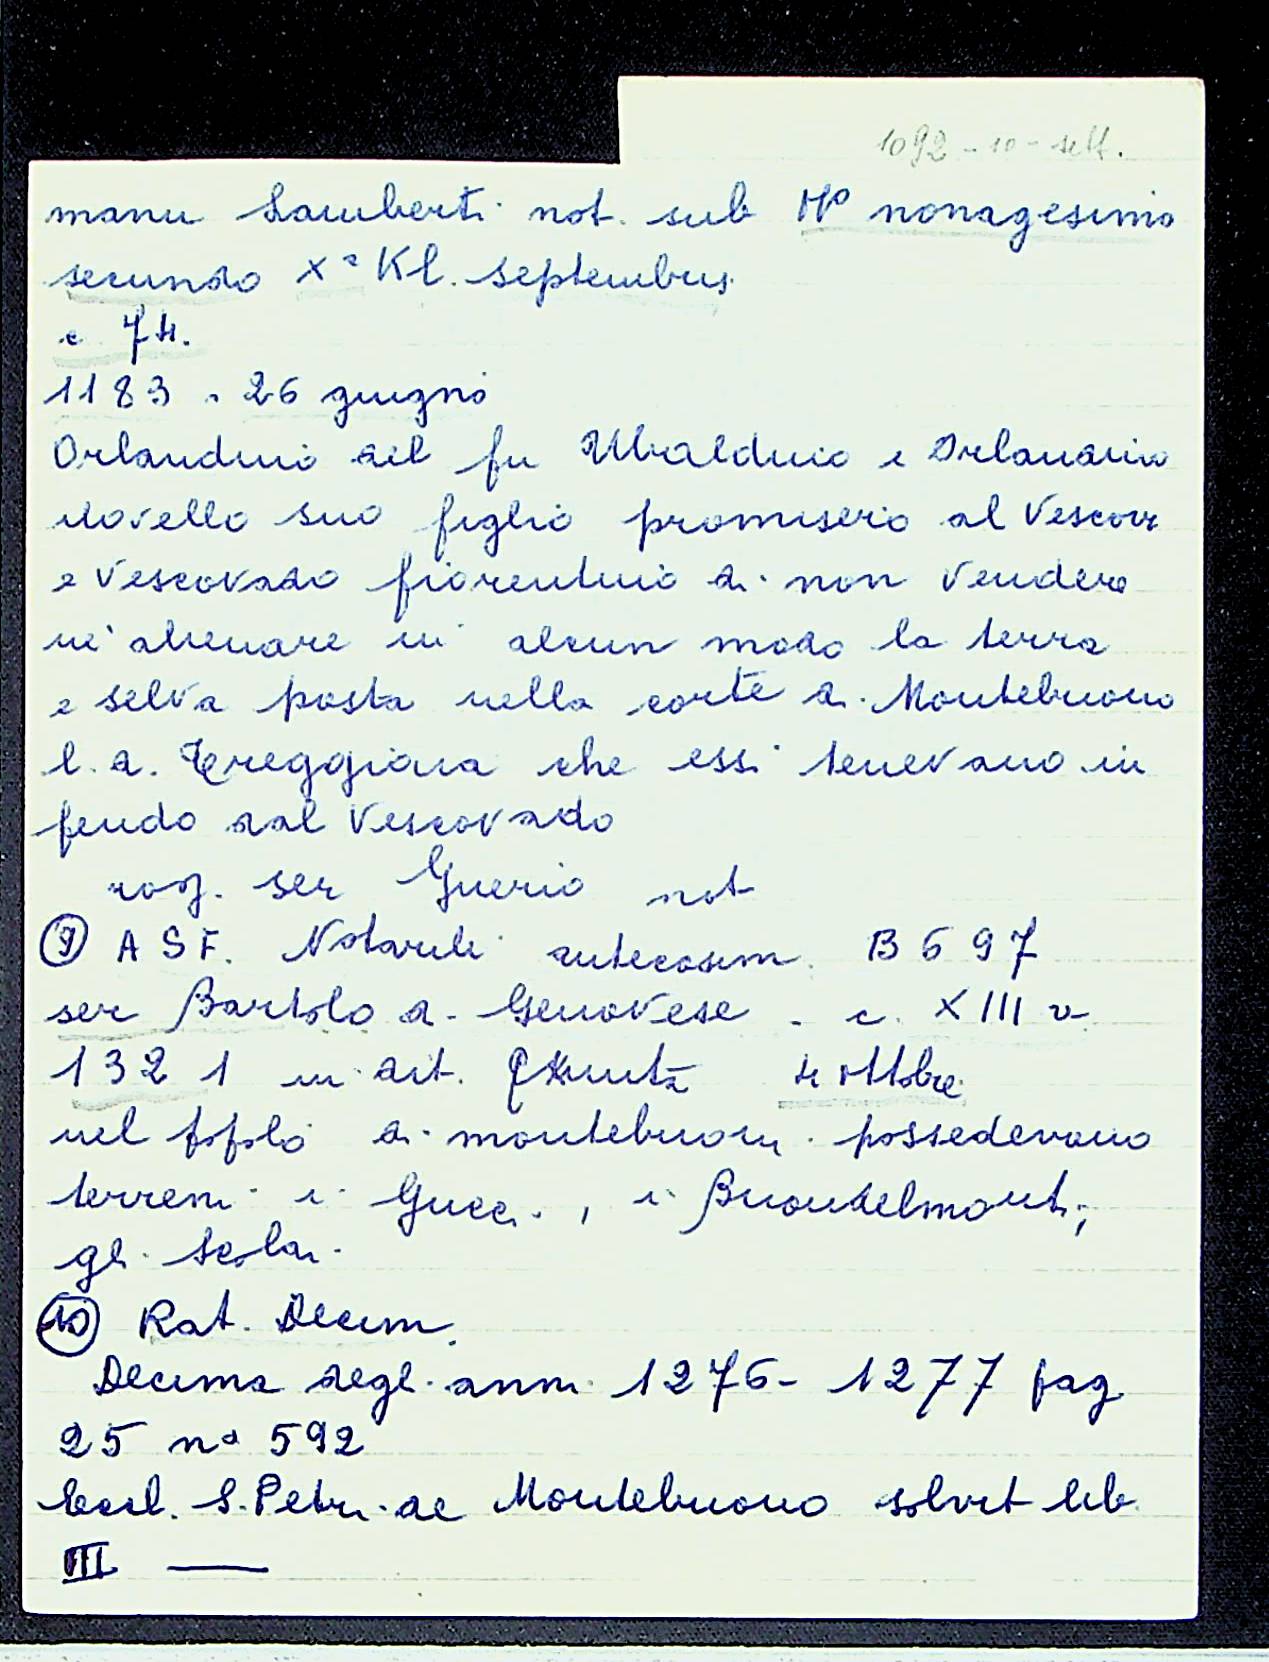 1092 - 10 - sett.
manu Lamberti not. sub M° nonagesimo
secundo Xª Kl. septembris
c 74.
1183 . 26 giugno
Orlandino del fu Ubaldino e Orlandino
novello suo figlio promiserio al Vescov
e Vescovado fiorentino di non vendere
nè alienare in alcun modo la terra
e selva posta nella corte di Montebuono
l. d. Treggiaia che essi tenevano in
feudo dal Vescovado
rog. ser Guerio not
9 A S F. Notarili antecosim. B 697
ser Bartolo di Genovese - c. XIII v
1321 in dit. 4 ottobre
nel popolo di montebuoni possedevano
terreni i Gucci, i Buondelmonti,
gli Scolari.
10 Rat. Decim.
Decima degli anni 1276-1277 pag
25 nº 592
Eccl. S. Petri de Montebuono solvit lib.
III —